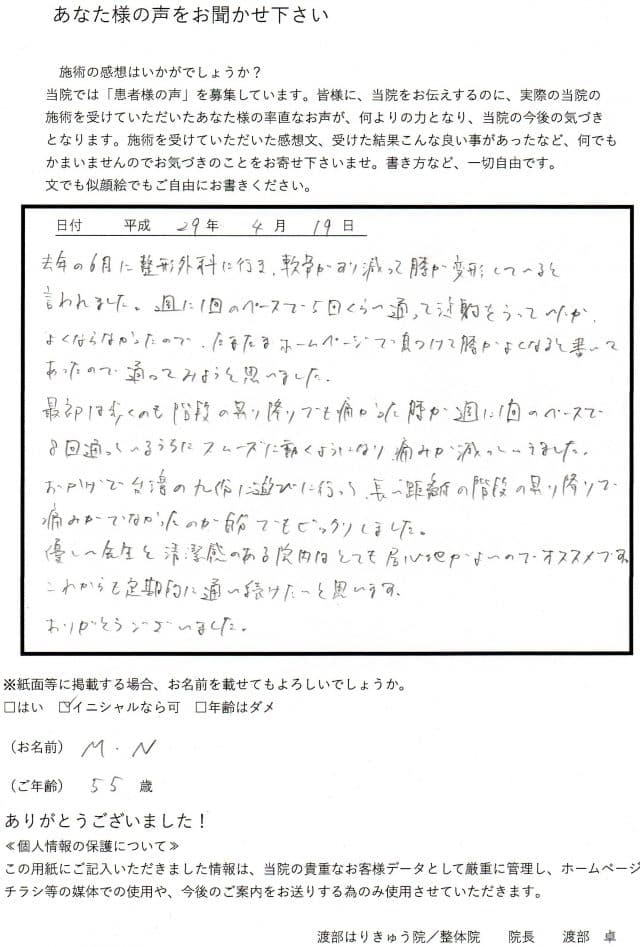 あなた様の声をお聞かせ下さい
施術の感想はいかがでしょうか?
当院では「患者様の声」を募集しています。皆様に、当院をお伝えするのに、実際の当院の
施術を受けていただいたあなた様の率直なお声が、何よりの力となり、当院の今後の気づき
となります。施術を受けていただいた感想文、受けた結果こんな良い事があったなど、何でも
かまいませんのでお気づきのことをお寄せ下さいませ。書き方など、一切自由です。
文でも似顔絵でもご自由にお書きください。
日付 平成 29年 4月 19日
去年の6月に整形外科に行き、軟骨がすり減って膝が変形していると
言われました。週に1回のペースで5回くらい通って注射をうっていたが、
よくならなかったので、たまたまホームページで見つけて膝がよくなると書いて
あったので通ってみようと思いました。
最初は歩くのも階段の昇り降りでも痛かった膝が週に1回のペースで
8回通っているうちにスムーズに動くようになり痛みが減っていきました。
おかげで台湾の九份に遊びに行って、長い距離の階段の昇り降りで
痛みがでなかったのが自分でもビックリしました。
優しい先生と清潔感のある院内はとても居心地がよいのでオススメです。
これからも定期的に通い続けたいと思います。
ありがとうございました。
※紙面等に掲載する場合、お名前を載せてもよろしいでしょうか。
□はい ☑イニシャルなら可 □年齢はダメ
(お名前) M・N
(ご年齢) 55 歳
ありがとうございました!
≪個人情報の保護について≫
この用紙にご記入いただきました情報は、当院の貴重なお客様データとして厳重に管理し、ホームページ
チラシ等の媒体での使用や、今後のご案内をお送りする為のみ使用させていただきます。
渡部はりきゅう院/整体院 院長 渡部 卓